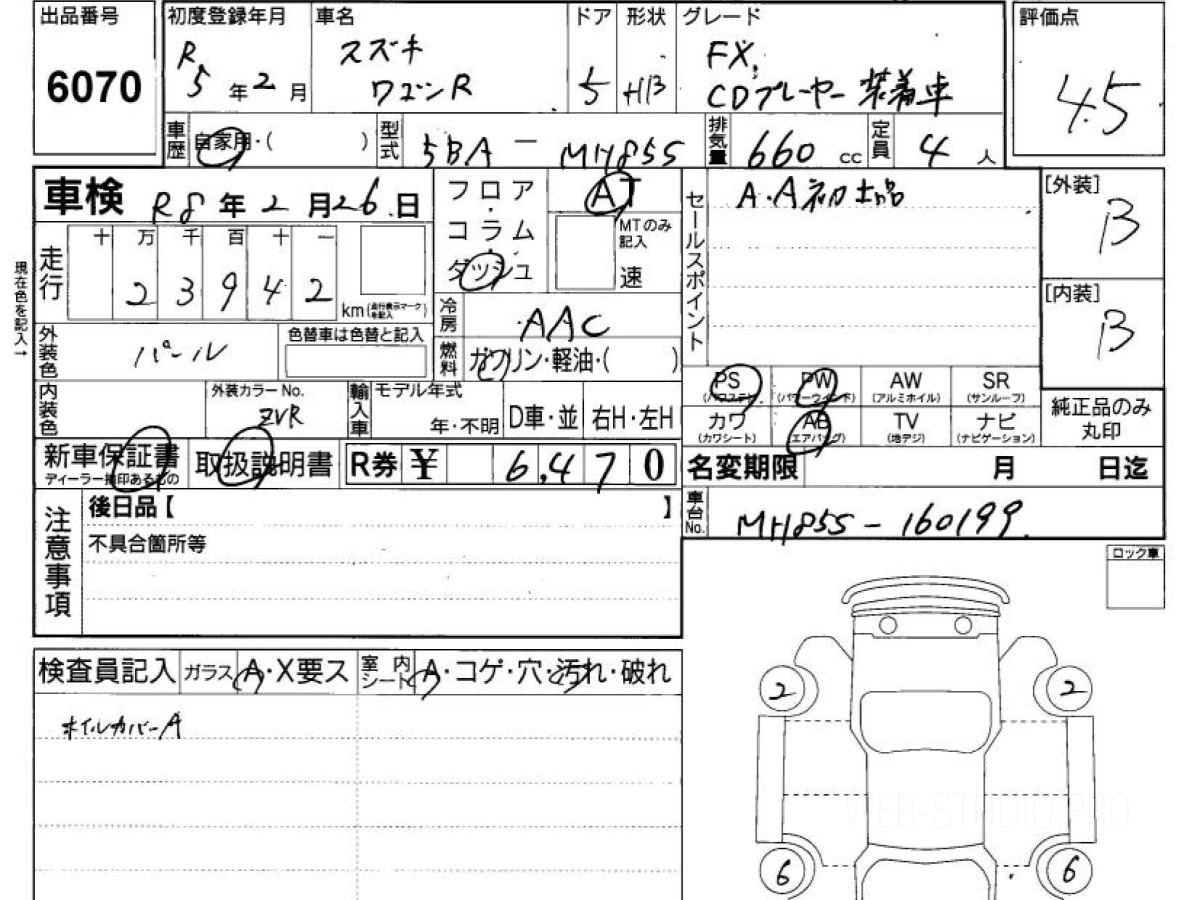 出品番号
6070
初度登録年月
R.5 年 2 月
車名
スズキ
ワゴンR
ドア
5
形状
HB
グレード
FX,
CDプレーヤー 装着車
評価点
4.5
車歴
自家用・( )
型式
5BA - MH85S
排気量
660 cc
定員
4 人
車検 R8 年 2 月 26 日
フロア
・
コラム
・
ダッシュ
AT
MTのみ
記入
速
セールスポイント
A.A初出品
[外装]
B
[内装]
B
現在色を記入→
走行
十 万 千 百 十 一
2 3 9 4 2
km (走行表示マークを記入)
冷房
AAC
燃料
ガソリン・軽油・( )
外装色
パール
色替車は色替と記入
内装色
外装カラー No.
ZVR
輸入車
モデル年式
年・不明
D車・並
右H・左H
PS
(パワステ)
PW
(パワーウインド)
AW
(アルミホイル)
SR
(サンルーフ)
カワ
(カワシート)
AB
(エアバッグ)
TV
(地デジ)
ナビ
(ナビゲーション)
純正品のみ
丸印
新車保証書
ディーラー捺印あるもの
取扱説明書
R券 ¥ 6,470
名変期限 月 日迄
車台No.
MH85S - 160199
注意事項
後日品【 】
不具合箇所等
ロック車
検査員記入
ガラス
A・X要ス
室内
シート
A・コゲ・穴・汚れ・破れ
ホイルカバーA
2
2
6
6
WEB-STUDIO.PRO